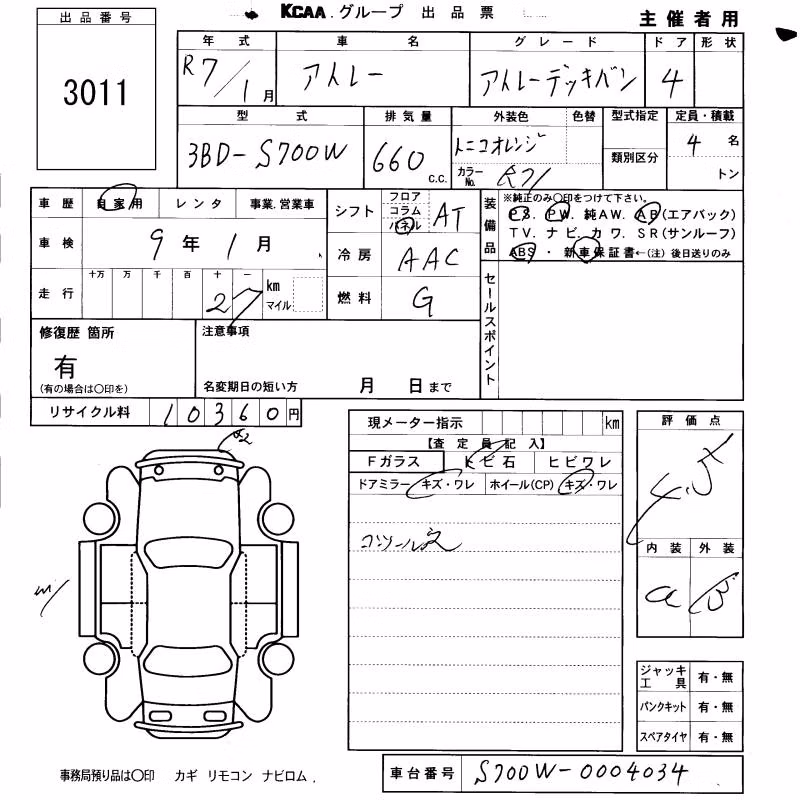 KCAA グループ 出品票
主催者用
出品番号
3011
年式 車名 グレード ドア 形状
R7/1月 アトレー アトレーデッキバン 4
型式 排気量 外装色 色替 型式指定 定員・積載
3BD-S700W 660 C.C. トニコオレンジ 4名
カラーNo. R71 類別区分 トン
車歴 自家用 レンタ 事業.営業車
車検 9年1月
走行 十万 万 千 百 十 一
27 km マイル
シフト フロア コラム パネル AT
冷房 AAC
燃料 G
装備品
※純正のみ〇印をつけて下さい。
PS. PW. 純AW. AB(エアバック)
TV. ナビ. カワ. SR(サンルーフ)
ABS ・ 新車保証書←(注) 後日送りのみ
セールスポイント
修復歴 箇所
有
(有の場合は〇印を)
注意事項
名変期日の短い方 月 日まで
リサイクル料 10360円
現メーター指示 km
【査定員記入】
Fガラス トビ石 ヒビワレ
ドアミラー キズ・ワレ ホイール(CP) キズ・ワレ
コンソール
評価点
4.5
内装 外装
a B
A2
ジャッキ工具 有・無
パンクキット 有・無
スペアタイヤ 有・無
事務局預り品は〇印 カギ リモコン ナビロム.
車台番号 S700W-0004034